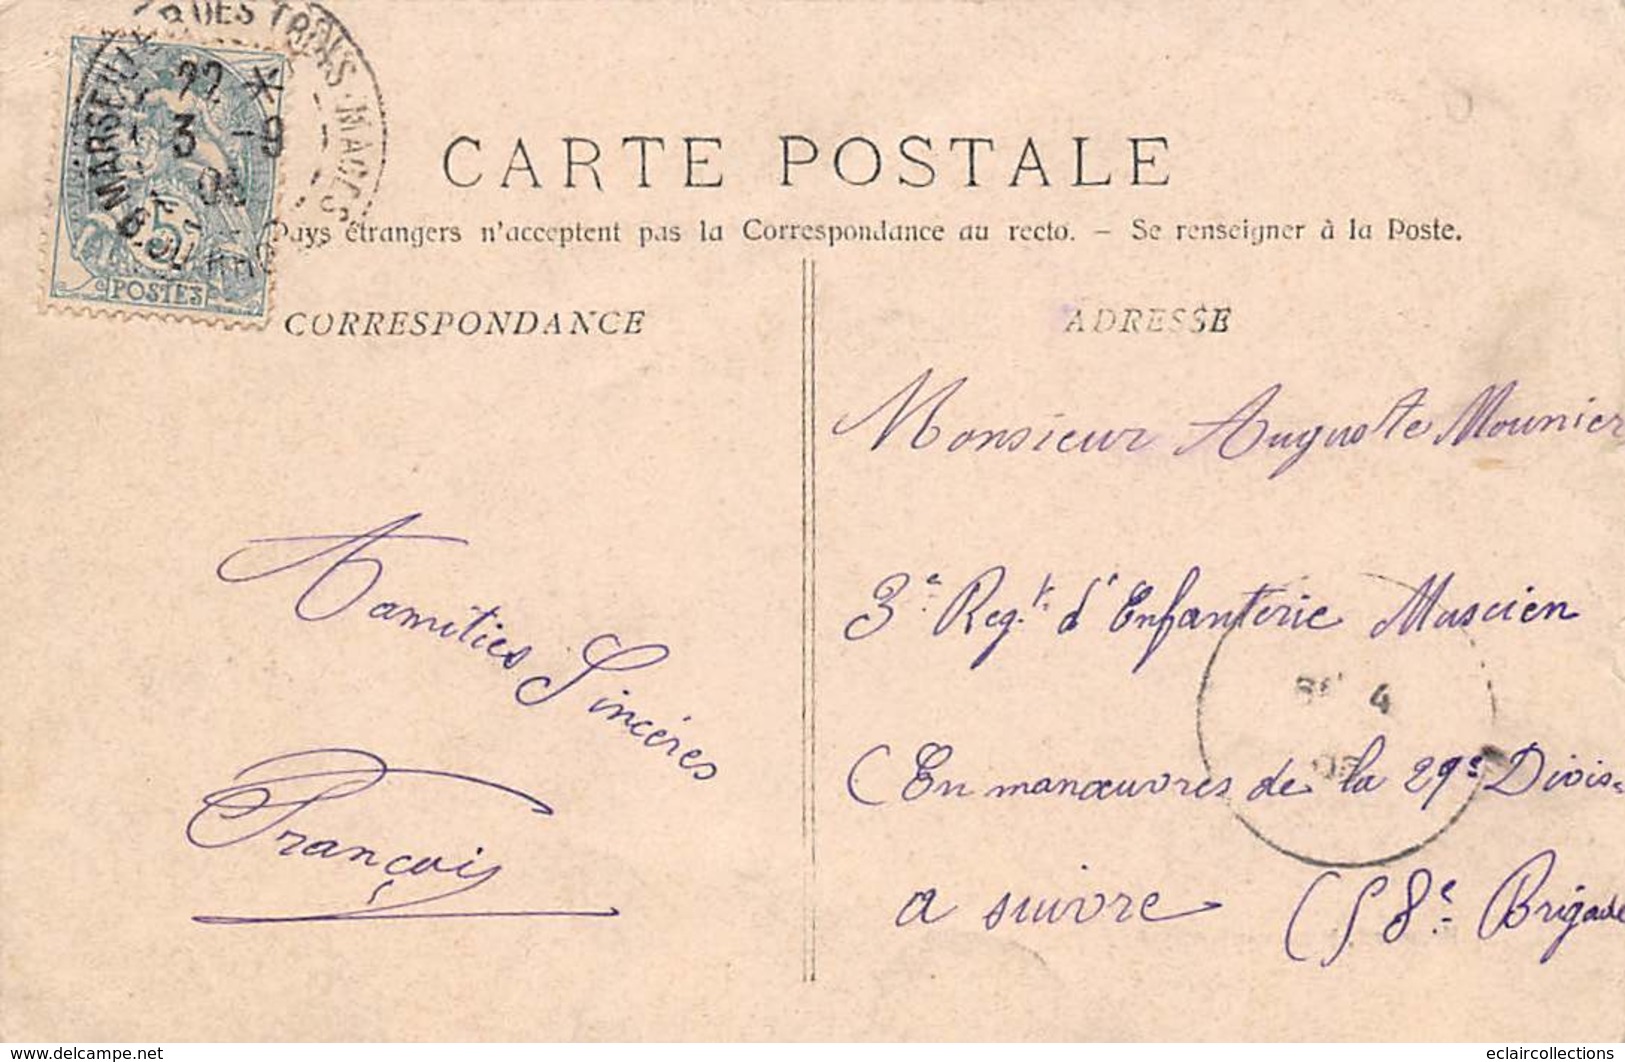 DES TROIS MAGES
MARSEILLE
22 *
3 -9
5
POSTES
CARTE POSTALE
Pays étrangers n'acceptent pas la Correspondance au recto. – Se renseigner à la Poste.
CORRESPONDANCE
ADRESSE
Monsieur Auguste Mounier
3e Regt. d'Enfanterie Muscien
(En manœuvres de la 29e Divis=
a suivre (58e Brigade
4
Aamities Sincéres
François
www.delcampe.net
eclaircollections